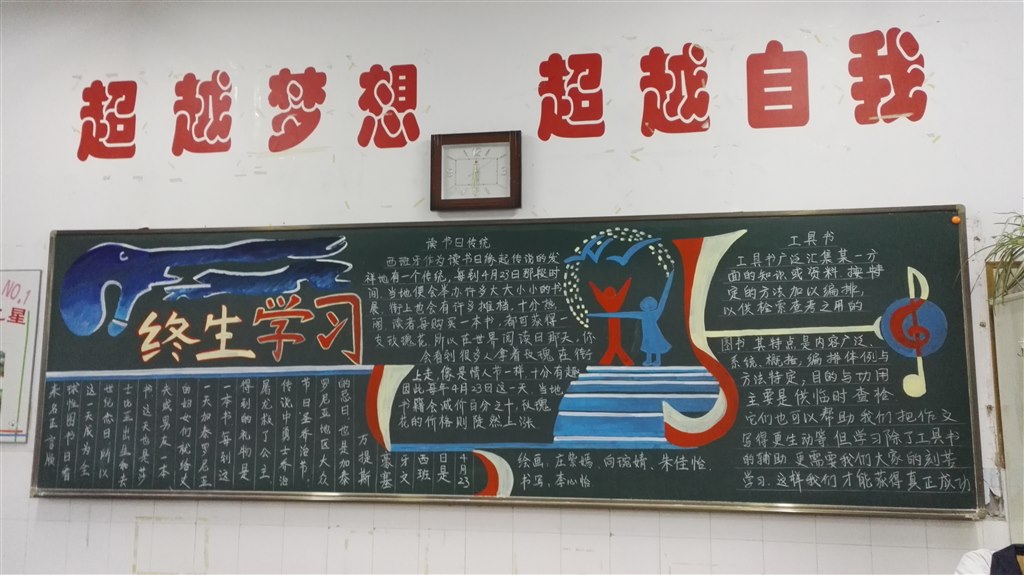 超越梦想 超越自我
NO.1
星
终生学习
读书日传统
西班牙作为读书日缘起传说的发
祥地有一个传统,每到4月23日那段时
间,当地便会举办许多大大小小的书
展,街上也会有许多摊档,十分热
闹 读者每购买一本书,都可获得一
支玫瑰花 所以在世界阅读日那天,你
会看到很多人拿着玫瑰 在街
上走,像是情人节一样 十分有趣
因此每年4月23日这一天 当地
书籍会减价百分之十,玫瑰
花的价格则陡然上涨
4月23
日是
西班
牙文
豪塞
万提斯
的忌日也是加泰
罗尼亚地区大众
节日圣乔治节
传说中勇士乔治
屠龙救了公主
得到的礼物是
一本书每到这
一天加泰罗尼亚
的妇女们就给丈
夫或男友一本
书 这天也是莎
士比亚出生和去
世纪念日所以
这一天成为全
球性图书日看
来名正言顺
绘画:庄紫嫣、向琬婧、朱佳怡
书写:李心怡
工具书
工具书广泛汇集某一方
面的知识或资料 按特
定的方法加以编排,
以供检索查考之用的
图书 其特点是内容广泛、
系统、概括,编排体例与
方法特定,目的与功用
主要是供临时查检
它们也可以帮助我们把作文
写得更生动等 但学习除了工具书
的辅助 更需要我们大家的刻苦
学习 这样我们才能获得真正成功